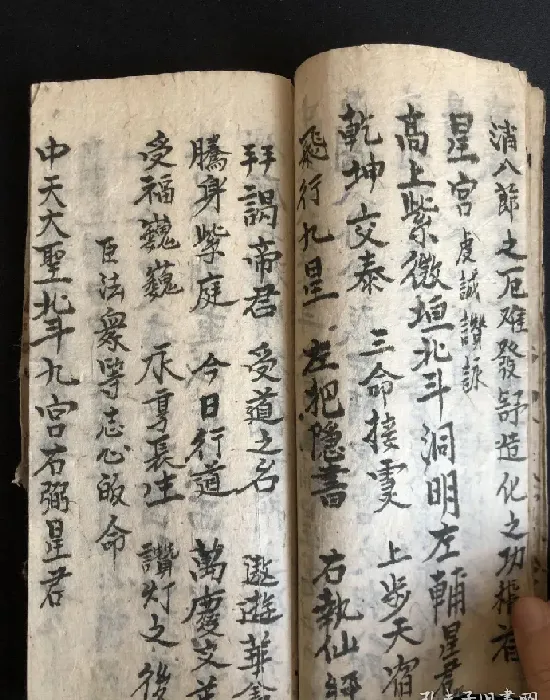 消八節之厄难發舒造化之功
星宮虔誠讚詠
高上紫微垣北斗洞明左輔星君
乾坤交泰 三命接 上步天宿
飛行九星 左把隐書 右執仙
拜謁帝君 受道之名 遨遊
騰身紫庭 今日行道 萬慶交
受福巍巍 永享長生 讚灯之後
臣法眾等志心皈命
中天大聖北斗九宮右弼星君